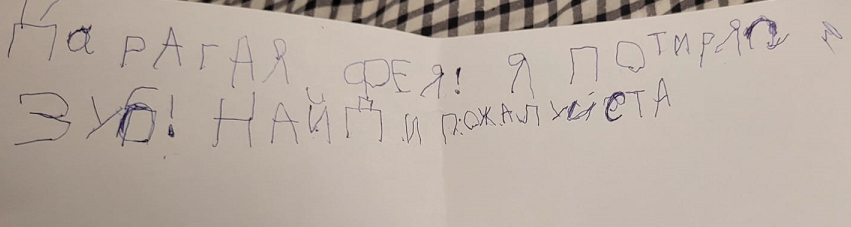 ДаРАГАЯ ФЕЯ! Я ПОТИРЯЛ
ЗУБ! НАЙДИ ПОЖАЛУЙСТА